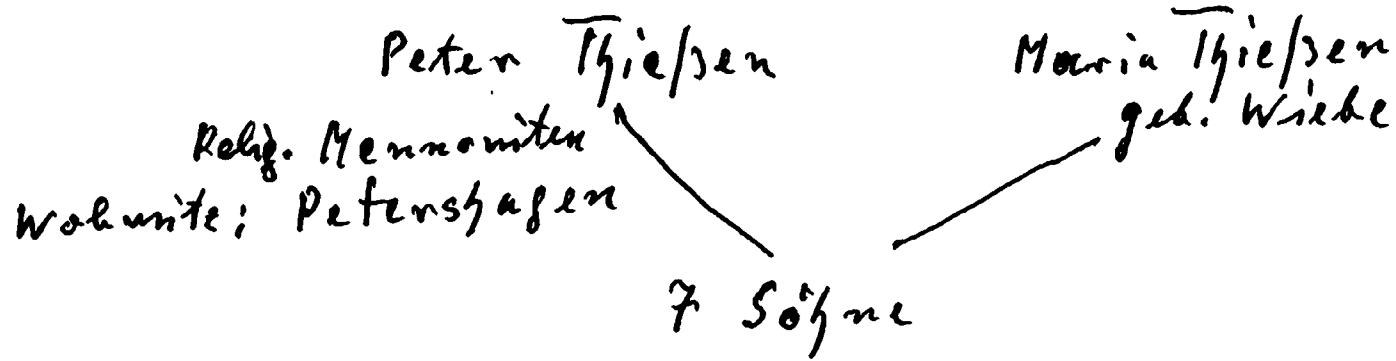 Peter Thießen
Maria Thießen
geb. Wiebe
Relig. Mennoniten
Wohnsitz: Petershagen
7 Söhne